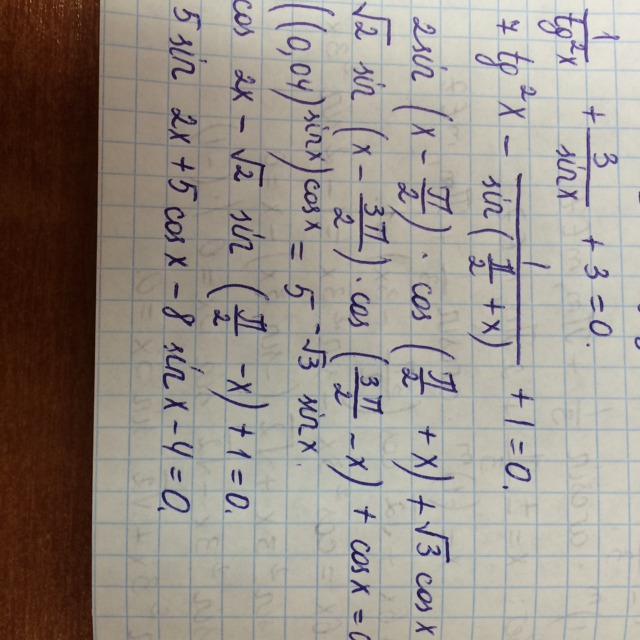 1/tg²x + 3/sin x + 3 = 0.
7 tg²x - 1/sin(π/2 + x) + 1 = 0.
2 sin (x - π/2) · cos (π/2 + x) + √3 cos x
√2 sin (x - 3π/2) · cos (3π/2 - x) + cos x = 0
((0,04)^sin x)^cos x = 5^-√3 sin x.
cos 2x - √2 sin (π/2 - x) + 1 = 0.
5 sin 2x + 5 cos x - 8 sin x - 4 = 0.